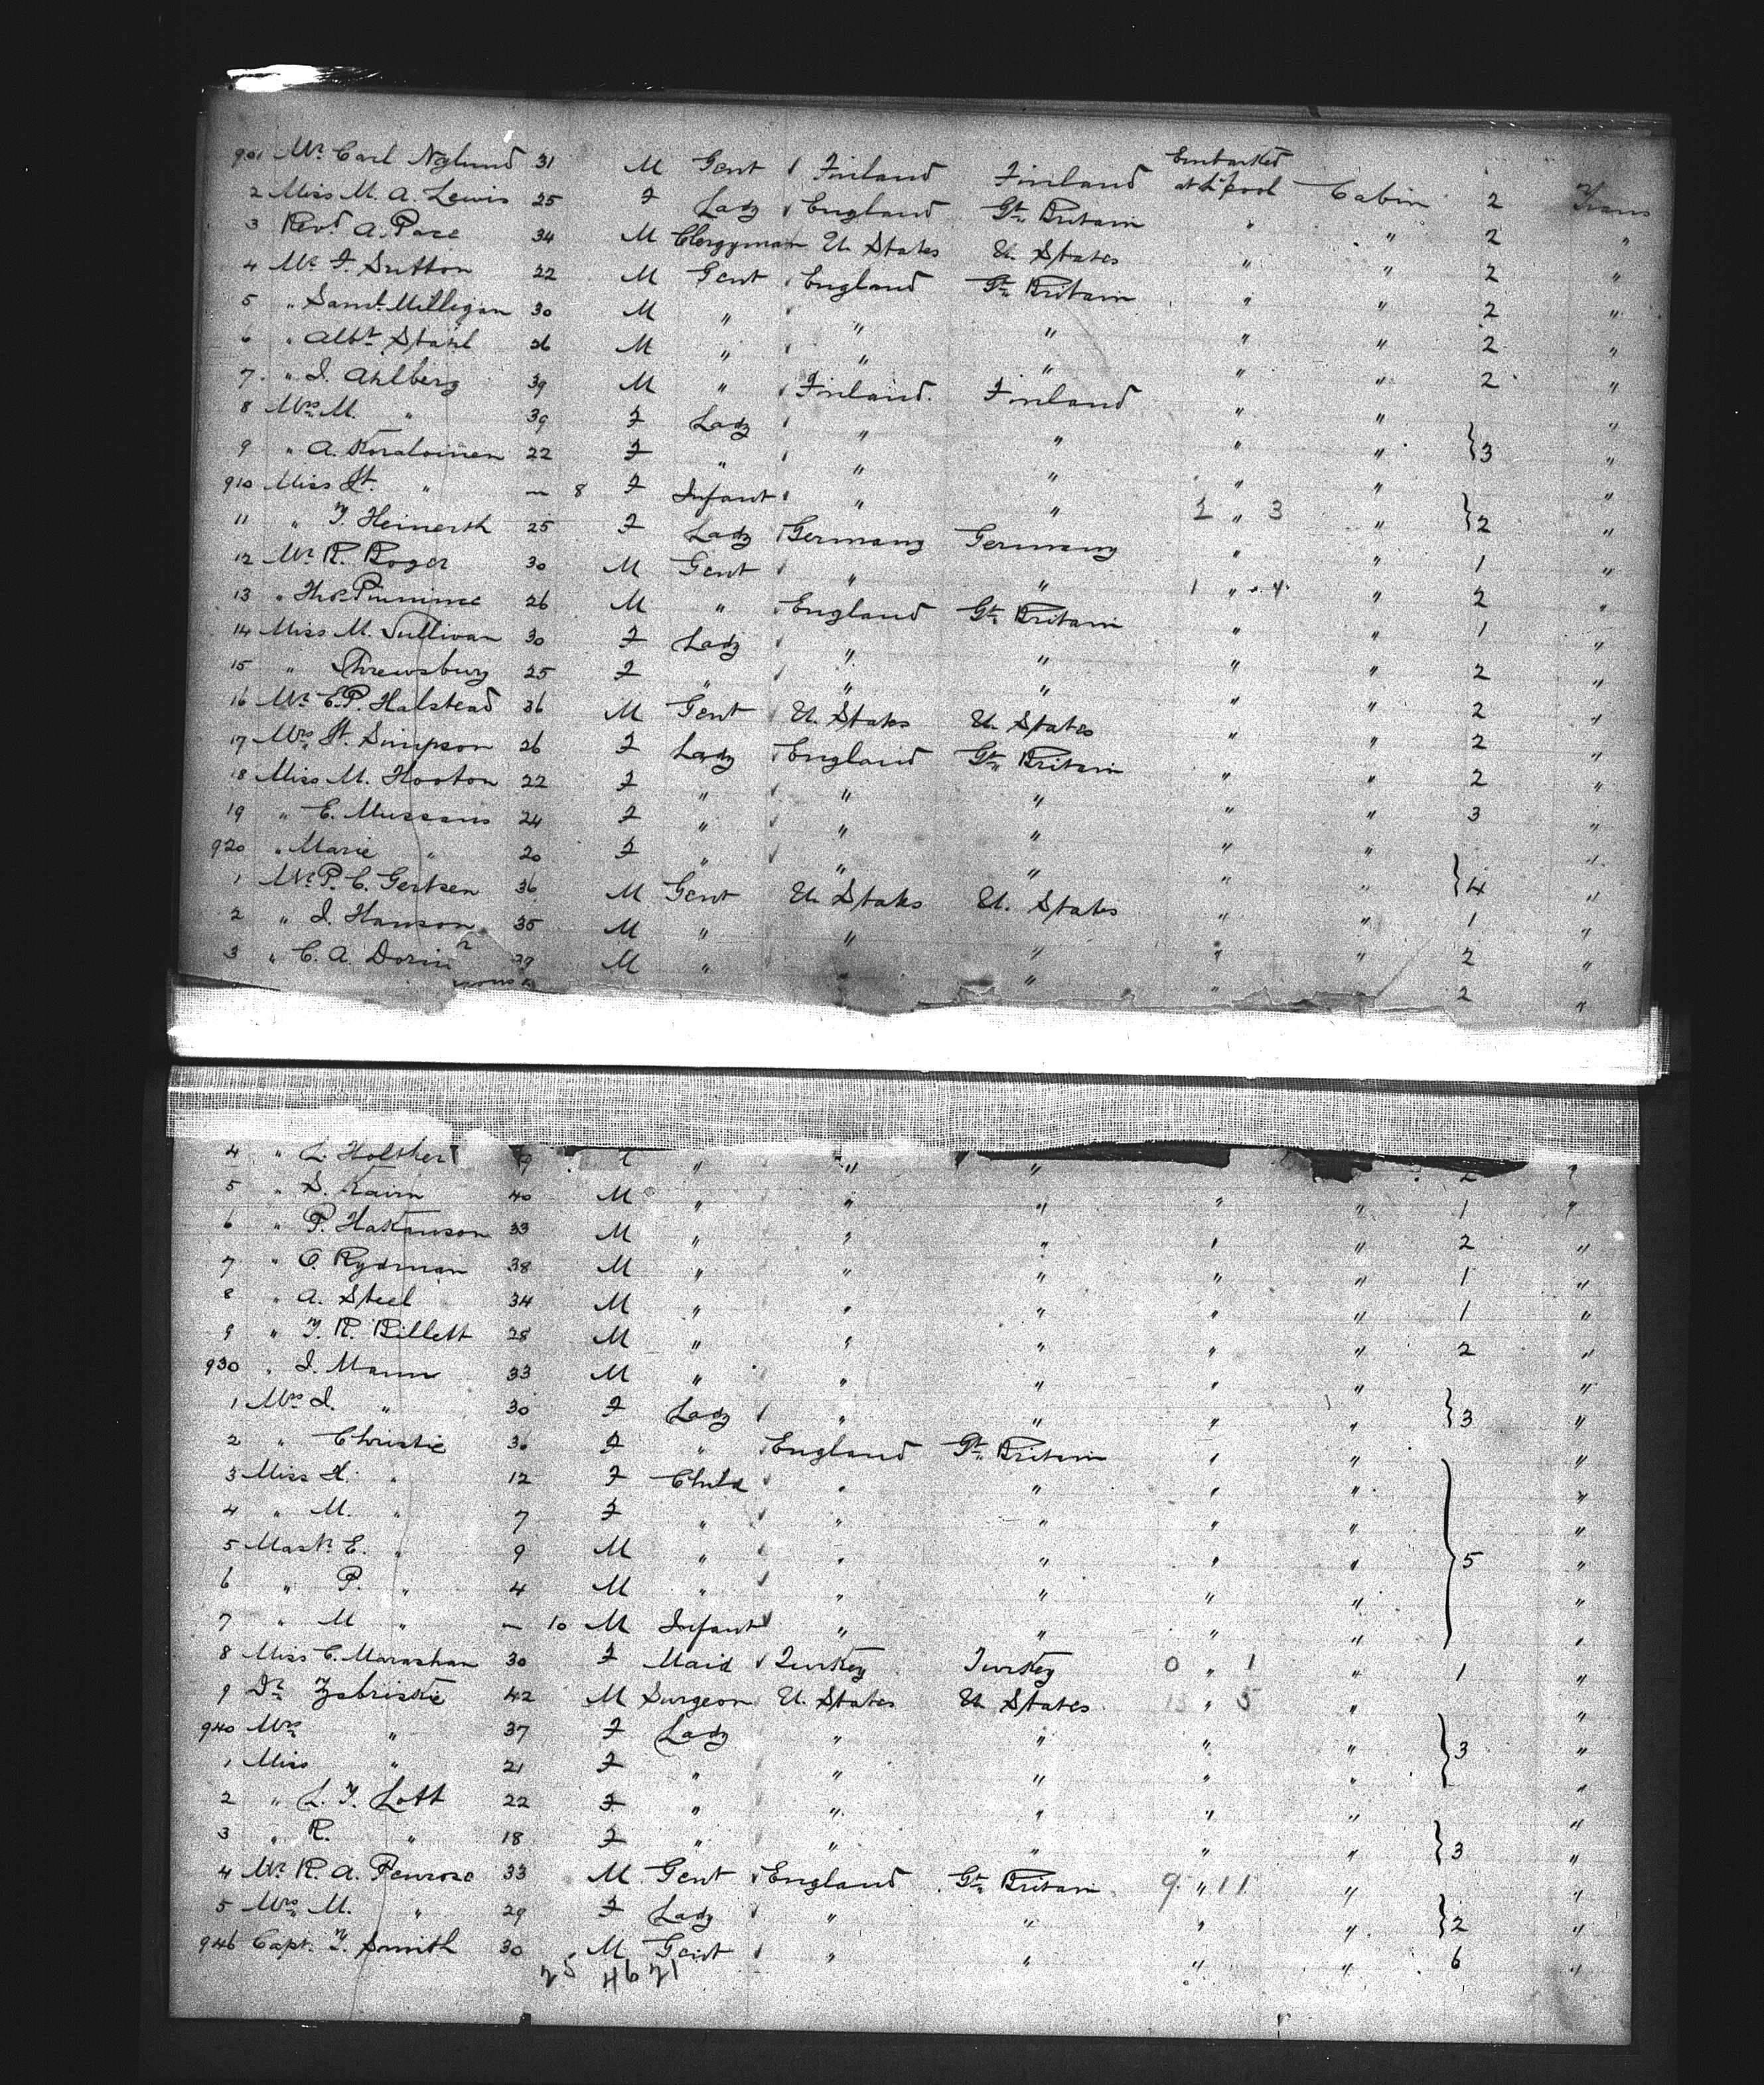 901 Mr. Carl Nylund 31 M Gent Finland Finland Embarked at L'pool Cabin 2 Trans
2 Miss M. A. Lewis 25 F Lady England Gt. Britain " " 2 "
3 Revd. A. Pace 34 M Clergyman U. States U. States " " 2 "
4 Mr. F. Sutton 22 M Gent England Gt. Britain " " 2 "
5 " Saml. Millegan 30 M " " " " " 2 "
6 " Albt. Stahl 26 M " " " " " 2 "
7 " I. Ahlberg 39 M " Finland Finland " "
8 Mrs. M. " 39 F Lady " " " " } 3 "
9 " A. 22 F " " " " " "
910 Miss " — 8 F Infant " " 2 " 3 " } 2 "
11 " F. Heinerth 25 F Lady Germany Germany " " 1 "
12 Mr. R. Roger 30 M Gent " " 1 " 4 " 2 "
13 " 26 M " England Gt. Britain " " 1 "
14 Miss M. Sullivan 30 F Lady " " " " 2 "
15 " Shrewsbury 25 F " " " " " 2 "
16 Mr. E. P. Halstead 36 M Gent U. States U. States " " 2 "
17 Mrs. H. Simpson 26 F Lady England Gt. Britain " " 2 "
18 Miss M. Hooton 22 F " " " " " 3 "
19 " E. Mussans 24 F " " " " " "
920 " Marie " 20 F " " " " " } 4 "
1 Mr. P. C. Gertsen 36 M Gent U. States U. States " " 1 "
2 " I. Hanson 35 M " " " " " 2 "
3 " C. A. Dorin 39 M " " " " 2 "
4 " L. Holther 2
5 " S. Kairn 40 M " " " " " 1 "
6 " P. Hakanson 33 M " " " " " 2 "
7 " O. Rydman 38 M " " " " " 1 "
8 " A. Steel 34 M " " " " " 1 "
9 " T. R. Billett 28 M " " " " " 2 "
930 " I. Mann 33 M " " " " " "
1 Mrs. I. " 30 F Lady " " " " } 3 "
2 " Christie 36 F " England Gt. Britain " " "
3 Miss H. " 12 F Child " " " " "
4 " M. " 7 F " " " " " "
5 Mastr. E. " 9 M " " " " " } 5 "
6 " P. " 4 M " " " " " "
7 " M " — 10 M Infant " " " " "
8 Miss C. Marashan 30 F Maid Turkey Turkey 0 " 1 " 1 "
9 Dr. Zabriskie 42 M Surgeon U. States U. States 13 " 5 " "
940 Mrs. " 37 F Lady " " " " } 3 "
1 Miss " 21 F " " " " " "
2 " L. F. Lott 22 F " " " " " "
3 " R. " 18 F " " " " " } 3 "
4 Mr. R. A. Penrose 33 M Gent England Gt. Britain 9 " 11 " "
5 Mrs. M. " 29 F Lady " " " " } 2 "
946 Capt. T. Smith 30 M Gent " " " " 6 "
25 46 21